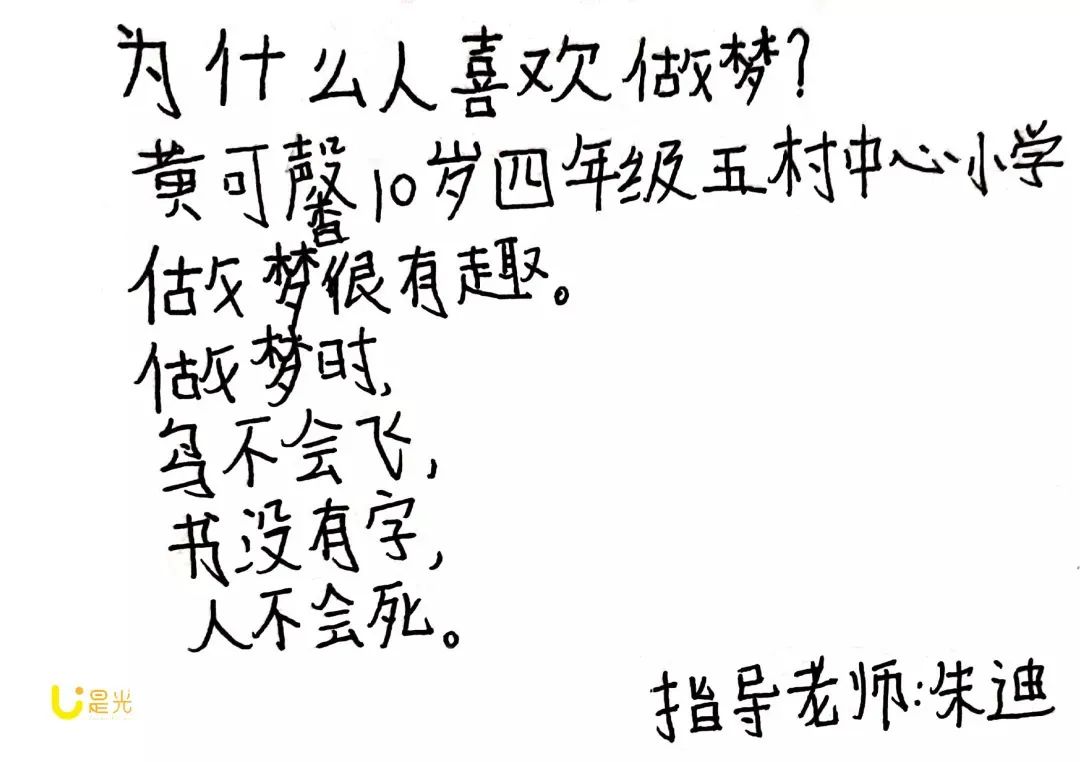 为什么人喜欢做梦?
黄可馨10岁四年级五村中心小学
做梦很有趣。
做梦时,
鸟不会飞,
书没有字,
人不会死。
指导老师:朱迪
是光